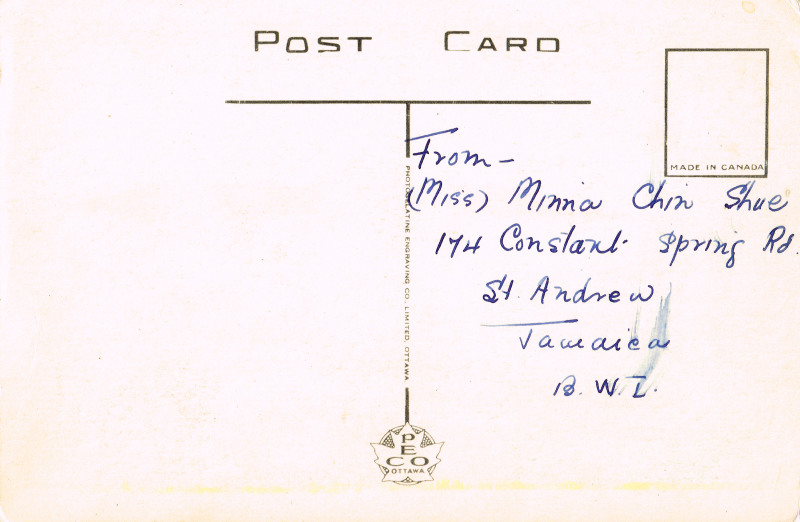 POST CARD
MADE IN CANADA
PHOTOGELATINE ENGRAVING CO. LIMITED, OTTAWA
From -
(Miss) Minna Chin Shue
174 Constant Spring Rd.
St. Andrew
Jamaica
B. W. I.
PECO
OTTAWA